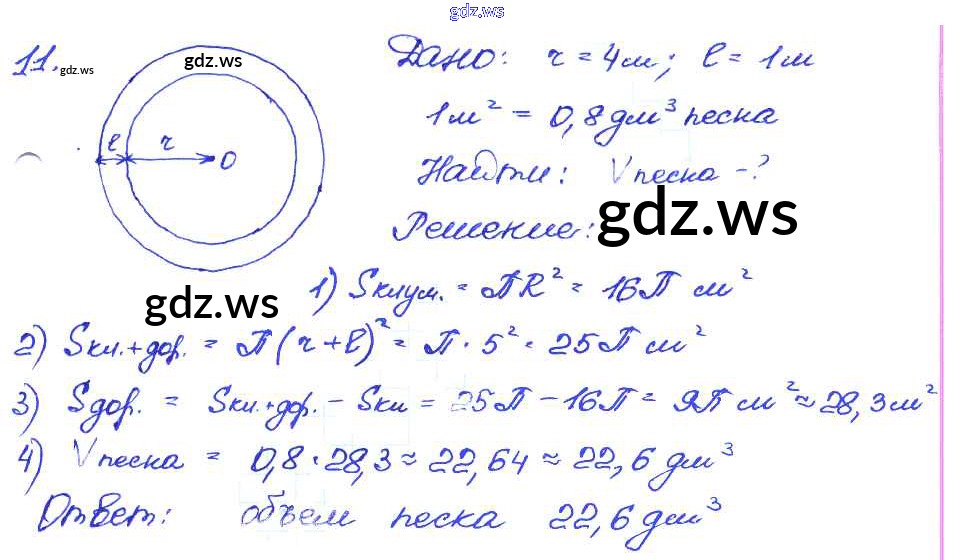 gdz.ws
11. gdz.ws
gdz.ws
Дано: r = 4м; l = 1м
1м² = 0,8 дм³ песка
l r O
Найти: Vпеска - ?
gdz.ws
Решение:
gdz.ws
1) Sклум. = ПR² = 16П м²
2) Sкл.+дор. = П(r+l)² = П · 5² = 25П м²
3) Sдор. = Sкл.+дор. - Sкл = 25П - 16П = 9П м² ≈ 28,3м²
4) Vпеска = 0,8 · 28,3 ≈ 22,64 ≈ 22,6 дм³
Ответ: объем песка 22,6 дм³